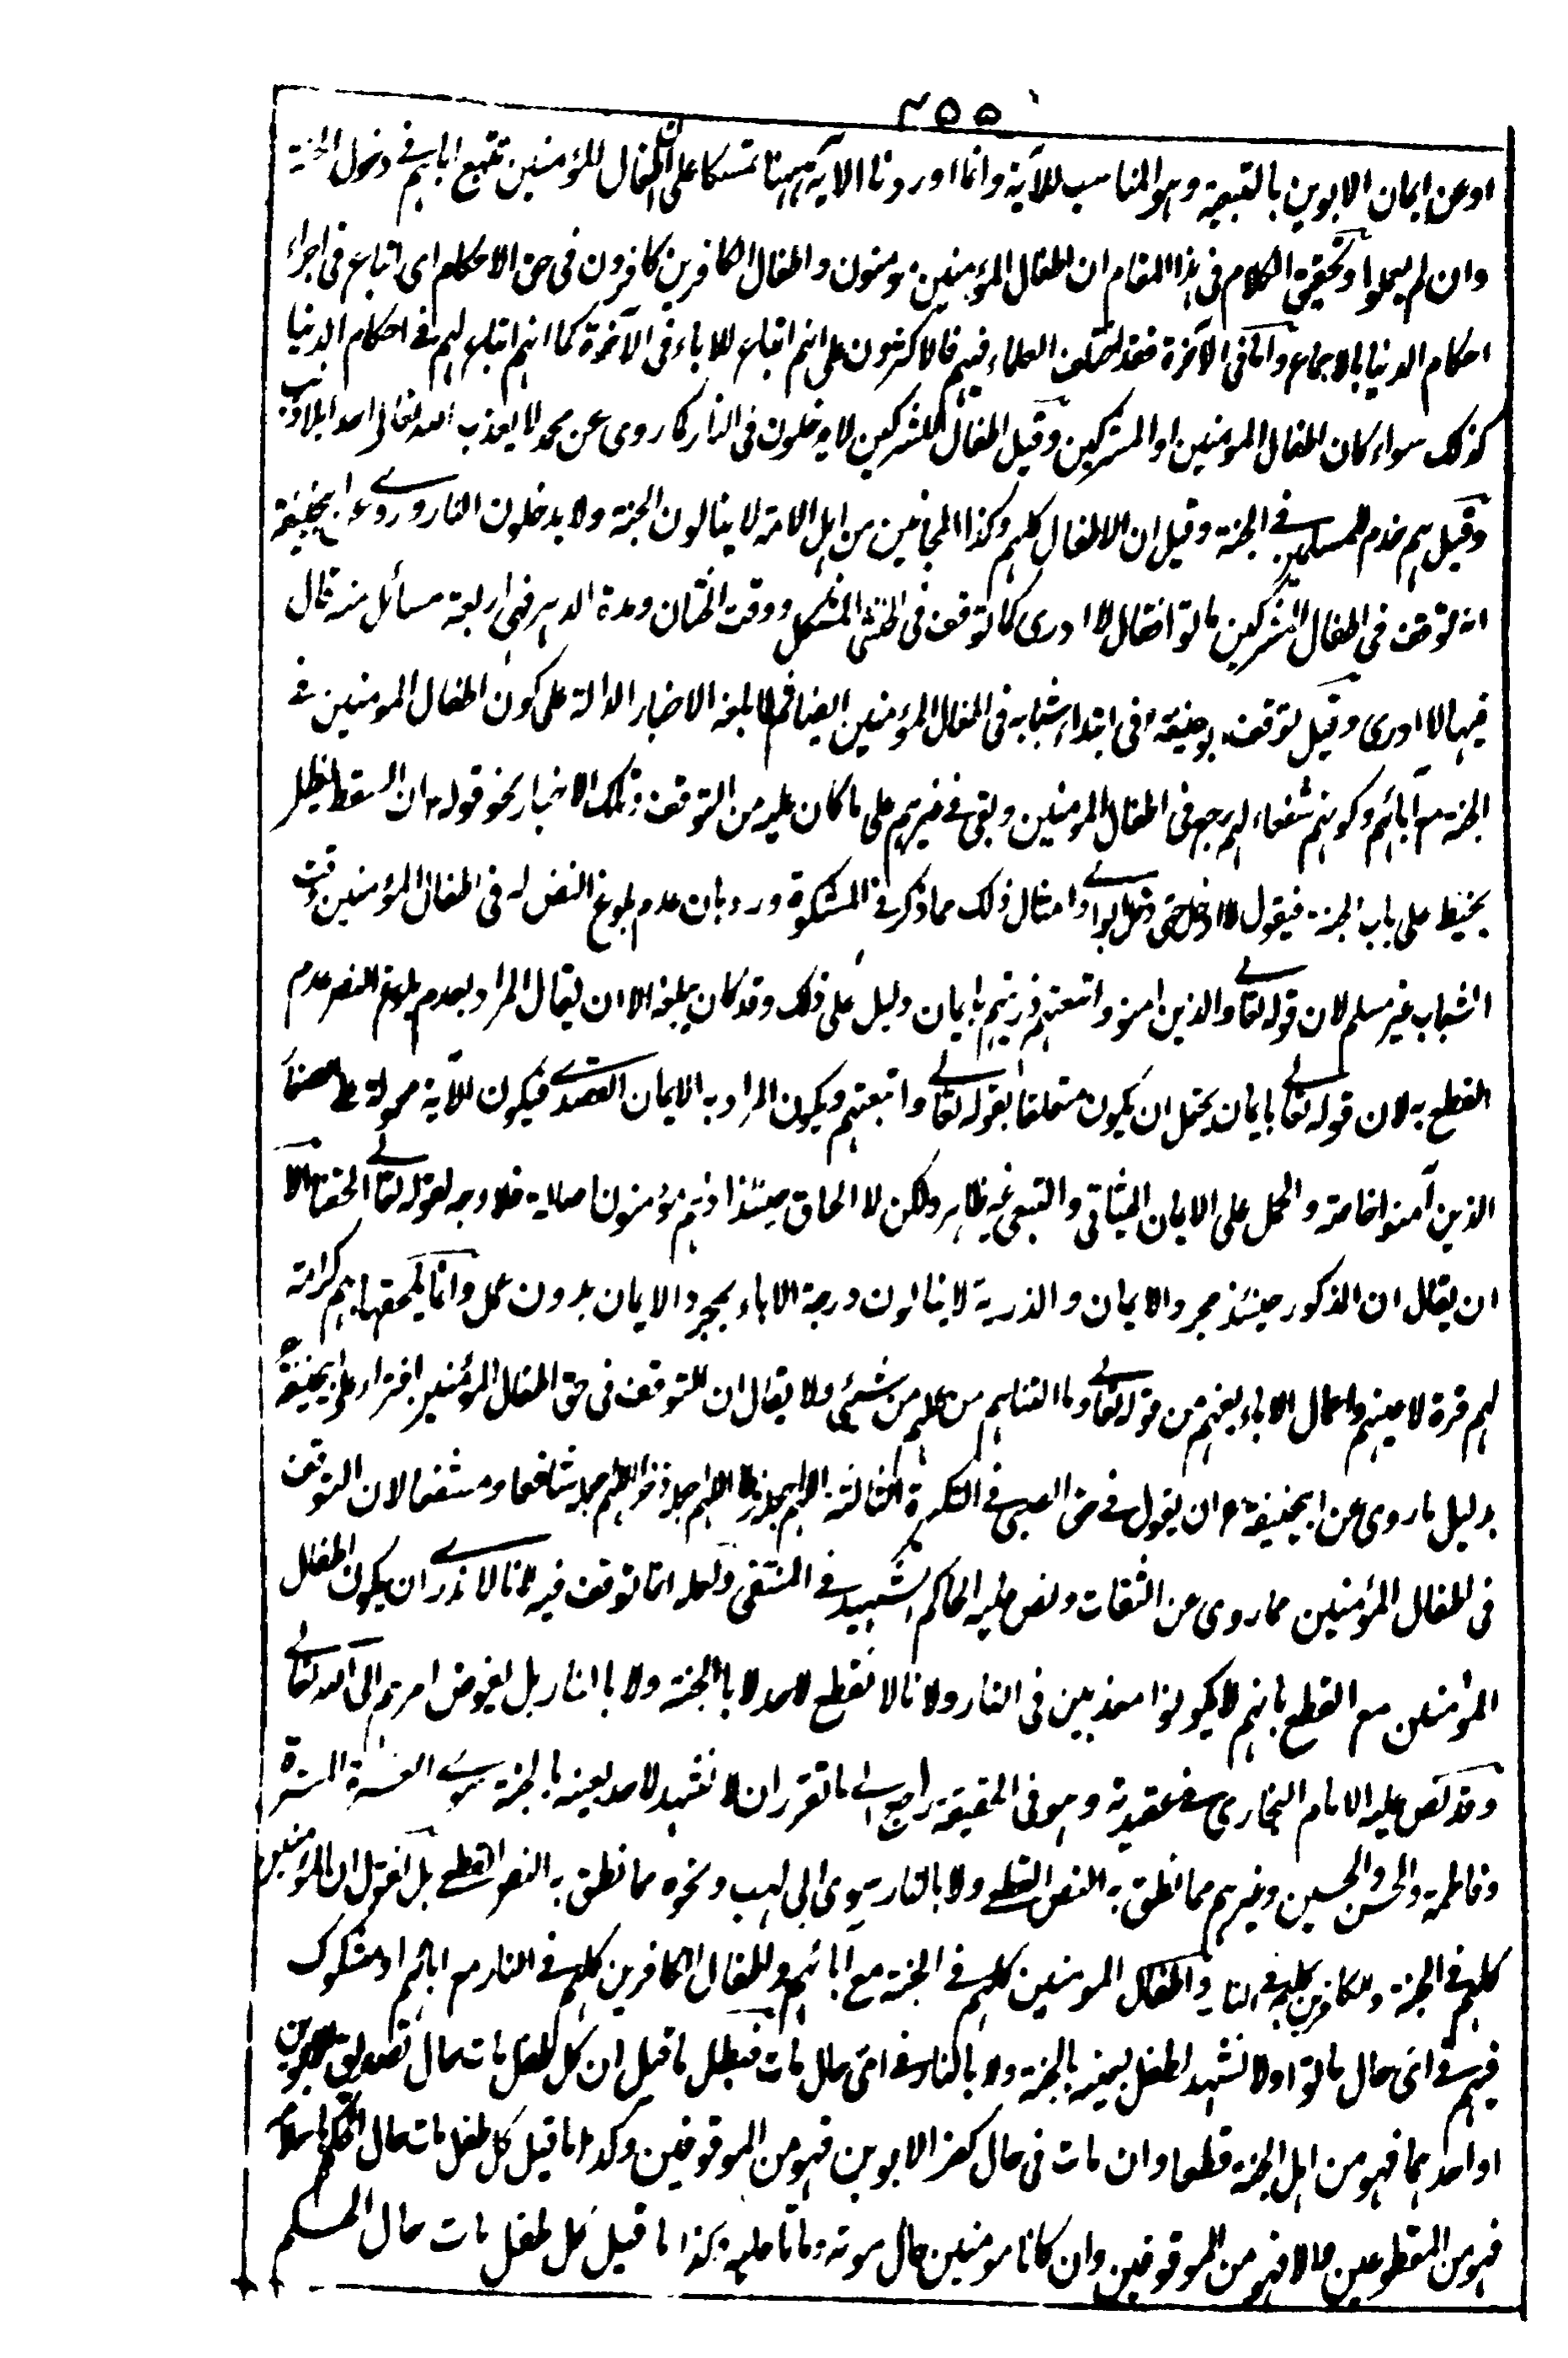 ٢٥٥
او عن ايمان الابوين بالتبعية وهو المناسب للآية وانما اوردنا الآية ههنا تمسكا على ان اطفال المؤمنين تتبع اباءهم في دخول الجنة
وان لم يعملوا وتحقيق الكلام فى هذا المقام ان اطفال المؤمنين مؤمنون واطفال الكافرين كافرون فى حق الاحكام اى اتباع فى اجراء
احكام الدنيا بالاجماع واما فى الآخرة فقد اختلف العلماء فيهم فالاكثرون على انهم اتباع للاباء فى الآخرة كما انهم اتباع لهم فى احكام الدنيا
كذلك سواء كان اطفال المومنين او المشركين وقيل اطفال المشركين لا يدخلون فى النار كما روى عن محمد لا يعذب الله تعالى احدا بلا ذنب
وقيل هم خدم المسلمين فے الجنة وقيل ان الاطفال كلهم وكذا المجانين من اهل الامة لا ينالون الجنة ولا يدخلون النار وروے عن ابيحنيفة
انه توقف فى اطفال المشركين ماتوا فقال لا ادرى كما توقف فى الخنثى المشكل ووقت الختان ومدة الدهر فهى اربعة مسائل منه قال
فيها لا ادرى وقيل توقف ابوحنيفة فى ابتداء شبابه فى اطفال المؤمنين ايضا فلما بلغه الاخبار الدالة على كون اطفال المومنين فے
الجنة مع آبائهم وكونهم شفعاء لهم رجع فى اطفال المومنين وبقى فے غيرهم على ما كان عليه من التوقف وتلك الاخبار نحو قوله ان السقط ليظل
يحبنط على باب الجنة فيقول لا ادخل حتى يدخل ابواے وامثال ذلك مما ذكر فے المشكوة ورد بان عدم بلوغ النص له فى اطفال المؤمنين وقت
الشباب غير مسلم لان قوله تعالے والذين امنو واتبعتهم ذريتهم بايمان دليل على ذلك وقد كان يبلغه الا ان يقال المراد بعدم بلوغ النص عدم
القطع به لان قوله تعالے بايمان يحتمل ان يكون متعلقا بقوله تعالے واتبعتهم ويكون المراد به الايمان القصدے فيكون الآية محمولة على
الذين آمنوا خاصة والحمل على الايمان الميثاقى والتبعى غير ظاهر ولكن لا الحاق حينئذ اذ هم مؤمنون اصالة فلا وجه لقوله تعالے الحقنا الا
ان يقال ان المذكور حينئذ مجرد الايمان والذرية لا ينالون درجة الاباء بمجرد الايمان بدون عمل وانما يلحقها بهم كرامة
لهم قرة لاعينهم واعمال الاباء يفهم من قوله تعالے وما التناهم من عملهم من شيئ ولا يقال ان التوقف فى حق اطفال المؤمنين افتراء على ابيحنيفة
بدليل ما روى عن ابيحنيفة ان يقول فے حق الصبى فے التكبيرة الثالثة اللهم اجعله لنا اللهم اجعله ذخرا اللهم اجعله شافعا ومشفعا لان التوقف
فى اطفال المؤمنين مما روى عن الثقات ونص عليه الحاكم الشهيد فے المنتقى ولعله انما توقف فيه لانا لا ندرے ان يكون اطفال
المؤمنين مع القطع بانهم لا يكونوا معذبين فى النار ولانا لا نقطع لاحد لا بالجنة ولا بالنار بل يفوض امرهم الى الله تعالے
وقد نص عليه الامام البخارى فے عقيدته وهو فى الحقيقة راجع الے ما تقرر ان لا نشهد لاحد بعينه بالجنة سوے العشرة المبشرة
وفاطمة والحسن والحسين وغيرهم مما نطق به النص القطعے ولا بالنار سوى ابى لهب ونحوه مما نطق به النص القطعے بل نقول ان المؤمنين
كلهم فے الجنة والكافرين كلهم فے النار واطفال المومنين كلهم فے الجنة مع آبائهم واطفال الكافرين كلهم فے النار مع ابائهم او مشكوك
فيهم فے اى حال ماتوا ولا نشهد لطفل بعينه بالجنة ولا بالنار فے اى حال مات فبطل ما قيل ان كل طفل مات حال تصديق الابوين
او احدهما فهو من اهل الجنة قطعا وان مات فى حال كفر الابوين فهو من الموقوفين وكذا ما قيل كل طفل مات حال الحكم باسلامه
فهو من المقطوعين والا فهو من الموقوفين وان كانا مومنين حال موته وماتا عليه وكذا ما قيل كل طفل مات حال المسلم